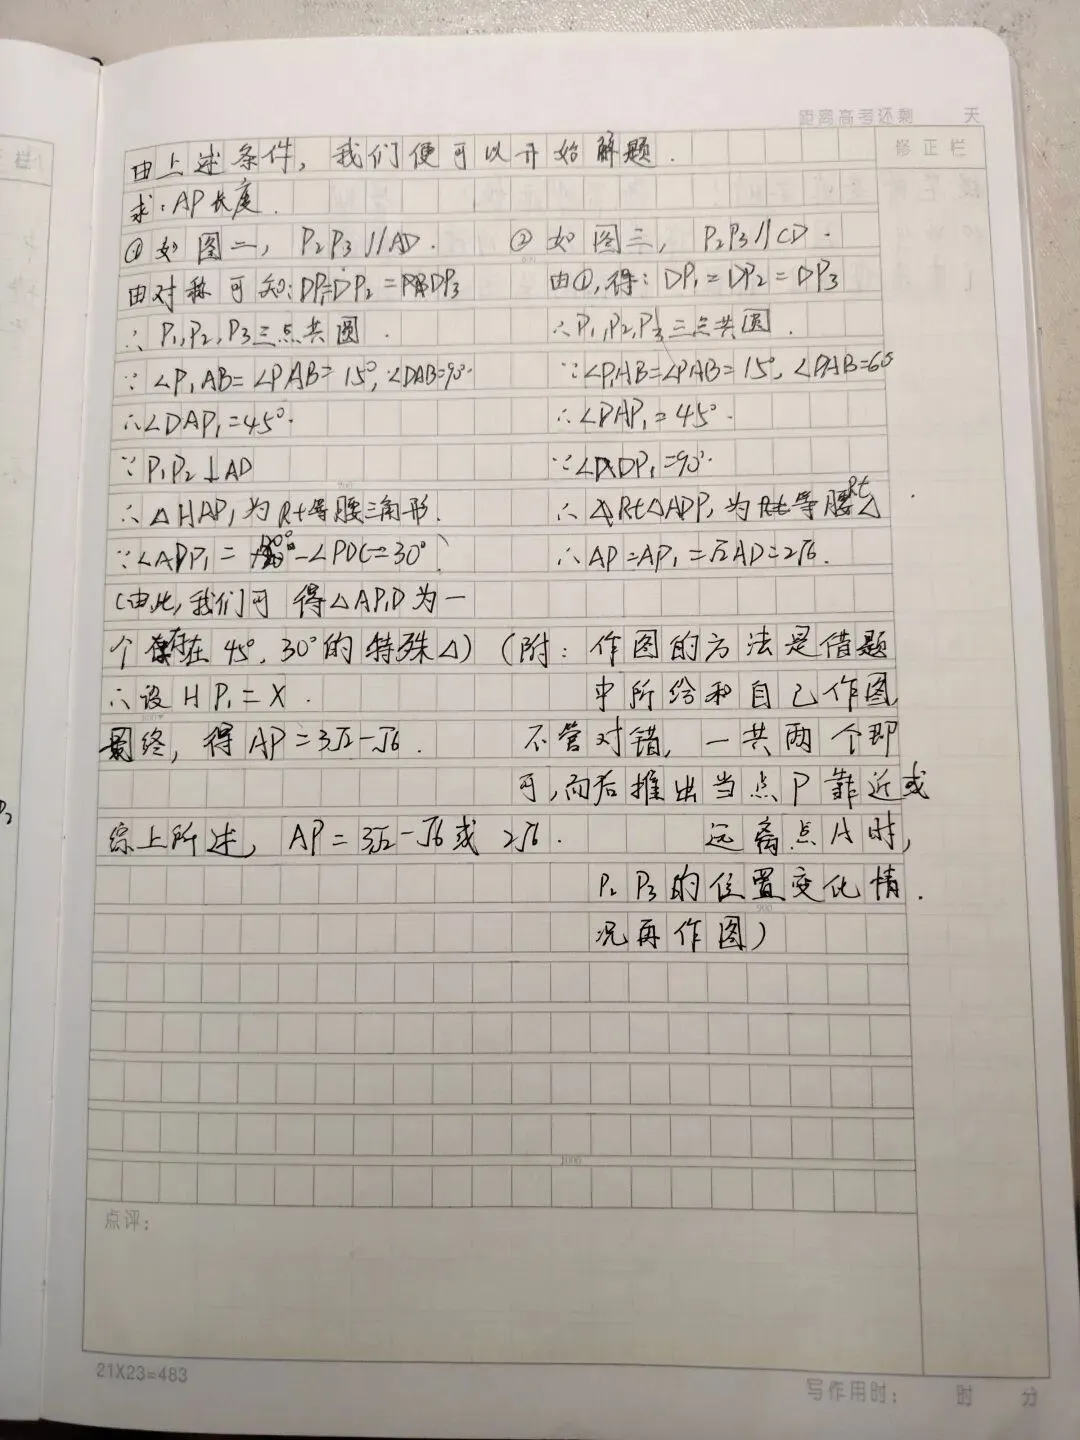 距离高考还剩 天
修正栏
由上述条件，我们便可以开始解题．
求：AP长度．
①如图二，P₂P₃∥AD．
由对称可知：DP₁=DP₂=DP₃
∴P₁,P₂,P₃三点共圆．
∵∠P₁AB=∠PAB=15°,∠DAB=90°.
∴∠DAP₁=45°.
∵P₁P₂⊥AD
∴△HAP₁为Rt等腰三角形．
∵∠ADP₁= -∠PDC=30°
(由此，我们可得△AP₁D为一
个存在45°，30°的特殊△)
∴设HP₁=X．
最终，得AP=3√2-√6．
综上所述，AP=3√2-√6或2√6．
②如图三，P₂P₃∥CD．
由①,得：DP₁=DP₂=DP₃
∴P₁,P₂,P₃三点共圆．
∵∠P₁AB=∠PAB=15°，∠DAB=60°
∴∠DAP₁=45°.
∵∠ADP₁=90°.
∴Rt△ADP₁为等腰Rt△
∴AP=AP₁=√2AD=2√6.
(附：作图的方法是借题
中所给和自己作图，
不管对错，一共两个即
可，而后推出当点P靠近或
远离点A时，
P₂P₃的位置变化情
况再作图)
900
1000
点评：
21X23=483
写作用时： 时 分